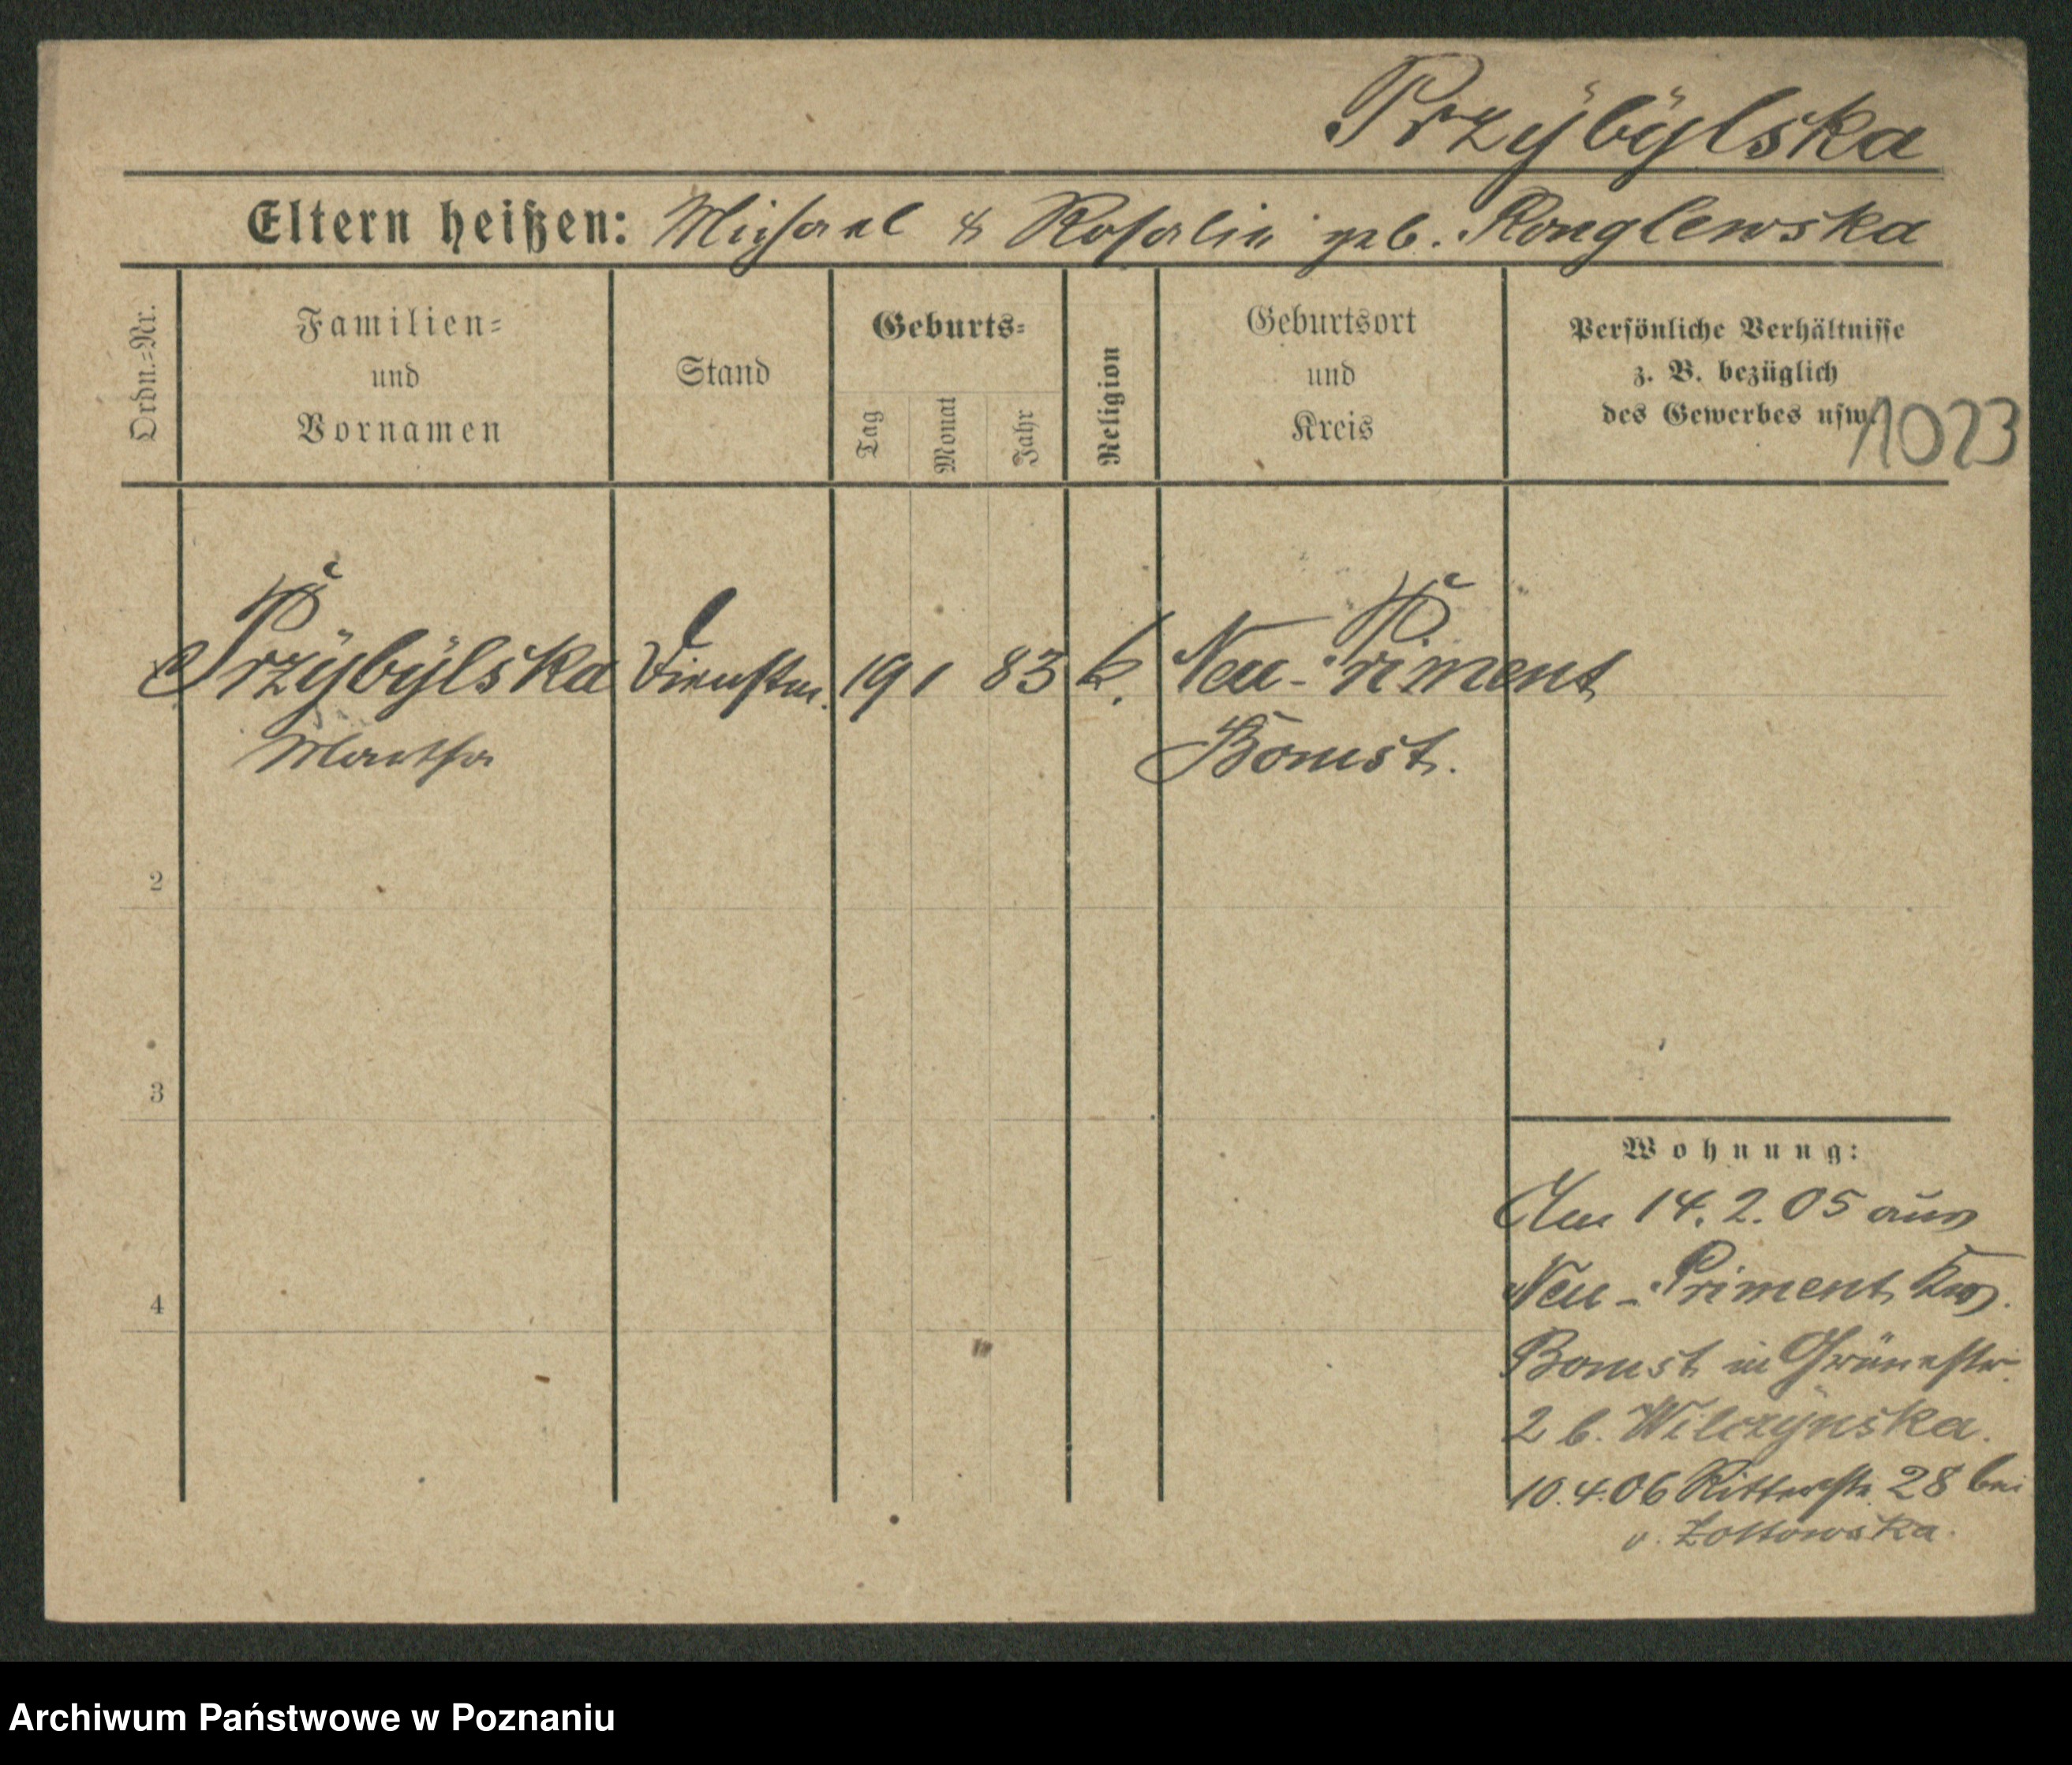 Przÿbÿlska
Eltern heißen: Michael & Rosalie geb. Konglewska
Ordn.-Nr.
Familien-
und
Vornamen
Stand
Geburts-
Tag
Monat
Jahr
Religion
Geburtsort
und
Kreis
Persönliche Verhältnisse
z. B. bezüglich
des Gewerbes usw.
1023
Przÿbÿlska Dienstm. 19 1 83 k. Neu-Priment
Martha Bomst.
2
3
4
Wohnung:
Am 14. 2. 05 aus
Neu-Priment Krs.
Bomst in Grünestr.
2 b. Wilczynska.
10.4.06 Ritterstr. 28 bei
v. Zoltowska.
Archiwum Państwowe w Poznaniu